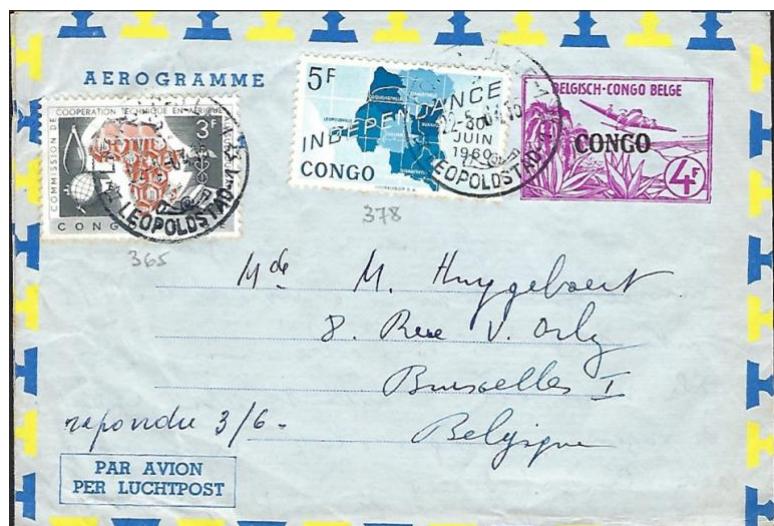 AEROGRAMME
COMMISSION DE COOPERATION TECHNIQUE EN AFRIQUE
3F
CONGO
LEOPOLDSTAD-1
365
5F
INDEPENDANCE
30
JUIN
1960
CONGO
LEOPOLDSTAD-1
378
BELGISCH-CONGO BELGE
CONGO
4F
Mde M. Huygebaert
8. Rue V. Orly
Bruxelles I
Belgique
repondu 3/6-
PAR AVION
PER LUCHTPOST